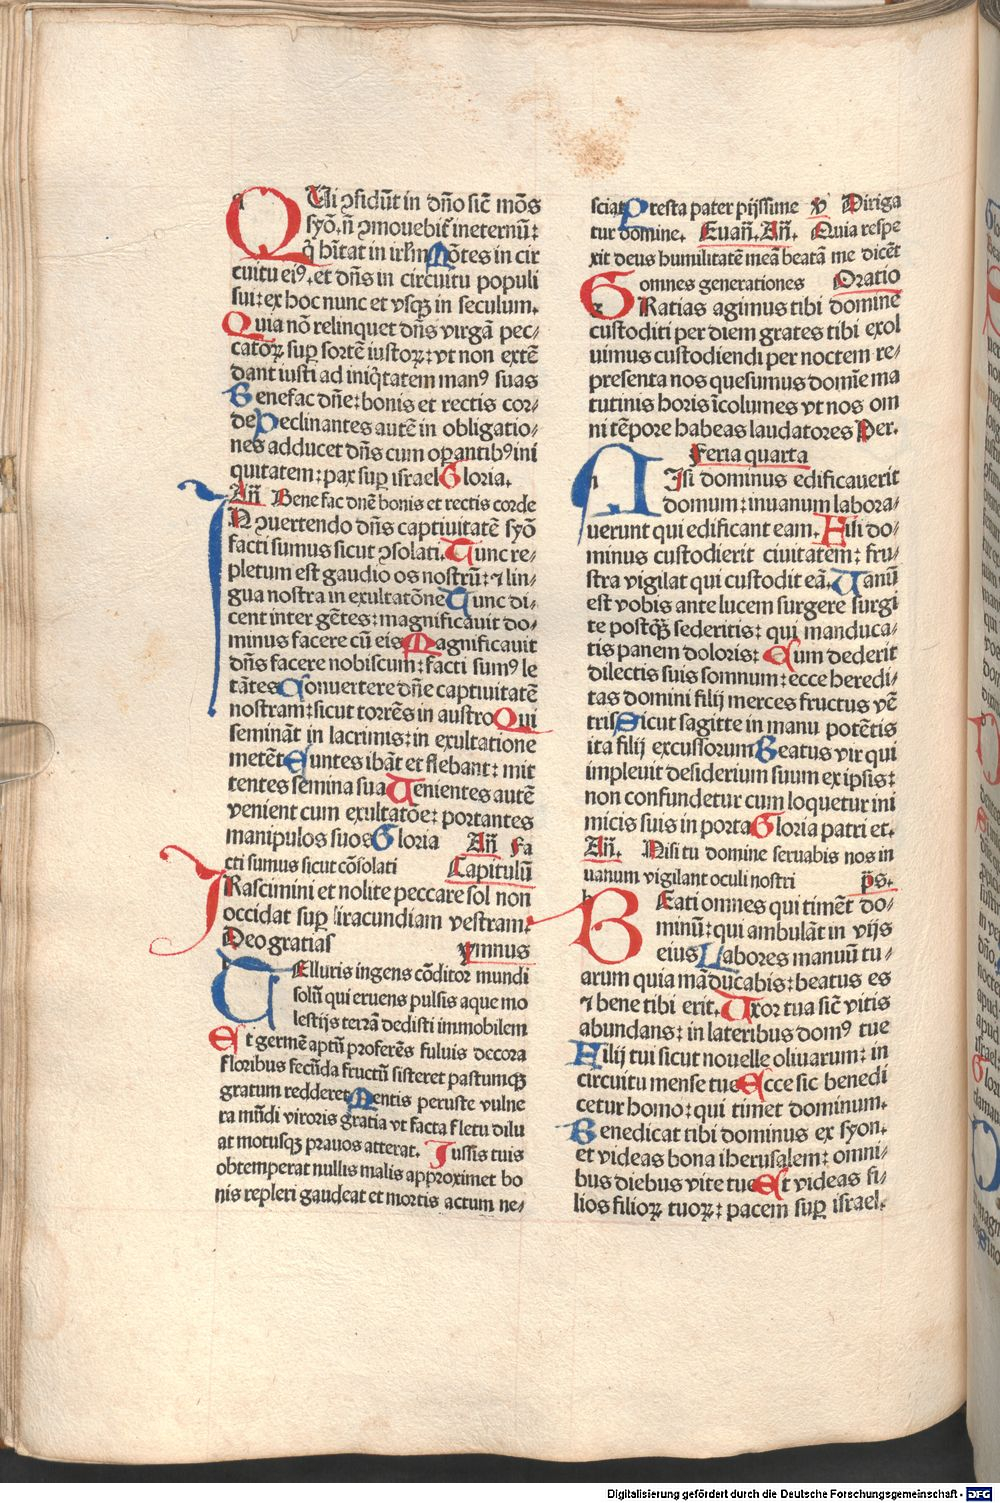 QUi ꝯfidūt in dño sic̄ mōs
syō. ñ ꝯmouebit̄ in eternū:
q̇ hītat in irłm Mōtes in cir
cuitu eiꝰ. et dñs in circuitu populi
sui: ex hoc nunc et vsqꝫ in seculum.
Quia nō relinquet dñs virgā pec/
catoꝝ suꝑ sortē iustoꝝ: vt non extē
dant iusti ad iniq̇tatem manꝰ suas
Benefac dñe: bonis et rectis cor/
de Declinantes autē in obligatio/
nes adducet dñs cum oꝑantibꝰ ini
quitatem: pax suꝑ israel Gloria.
Añ Bene fac dnē bonis et rectis corde
IN ꝯuertendo dñs captiuitatē syō
facti sumus sicut ꝯsolati. Tunc re/
pletum est gaudio os nostrū: ⁊ lin/
gua nostra in exultatōne Tunc di/
cent inter gētes: magnificauit do/
minus facere cū eis Magnificauit
dñs facere nobiscum: facti sumꝰ le
tātes Conuertere dñe captiuitatē
nostram: sicut torrēs in austro Qui
semināt in lacrimis: in exultatione
metēt Euntes ibāt et flebant: mit
tentes semina sua Uenientes autē
venient cum exultatōe: portantes
manipulos suos Gloria Añ Fa
cti sumus sicut cōsolati Capitulū
IRascimini et nolite peccare sol non
occidat suꝑ iracundiam vestram:
Deo gratias ymnus
TElluris ingens cōditor mundi
solū qui eruens pulsis aque mo
lestijs terrā dedisti immobilem
Et germē aptū proferēs fuluis decora
floribus fecūda fructū sisteret pastumqꝫ
gratum redderet Mentis peruste vulne
ra mūdi viroris gratia vt facta fletu dilu
at motusqꝫ prauos atterat. Iussis tuis
obtemperat nullis malis approximet bo
nis repleri gaudeat et mortis actum ne/
sciat Presta pater pijssime v Diriga
tur domine. Euañ. Añ. Quia respe
xit deus humilitatē meā beatā me dicēt
omnes generationes Oratio
GRatias agimus tibi domine
custoditi per diem grates tibi exol
uimus custodiendi per noctem re/
presenta nos quesumus domīe ma
tutinis horis īcolumes vt nos om
ni tēpore habeas laudatores Per.
Feria quarta
NIsi dominus edificauerit
domum: inuanum labora/
uerunt qui edificant eam. Nisi do/
minus custodierit ciuitatem: fru/
stra vigilat qui custodit eā. Uanū
est vobis ante lucem surgere surgi
te postqꝫ sederitis: qui manduca/
tis panem doloris: Cum dederit
dilectis suis somnum: ecce heredi/
tas domini filij merces fructus vē
tris Sicut sagitte in manu potētis
ita filij excussorum Beatus vir qui
impleuit desiderium suum ex ipsis:
non confundetur cum loquetur ini
micis suis in porta Gloria patri et.
Añ. Nisi tu domine seruabis nos in
uanum vigilant oculi nostri p̄s.
BEati omnes qui timēt do/
minū: qui ambulāt in vijs
eius Labores manuū tu/
arum quia māducabis: beatus es
⁊ bene tibi erit. Uxor tua sic̄ vitis
abundans: in lateribus domꝰ tue
Filij tui sicut nouelle oliuarum: in
circuitu mense tue Ecce sic benedi
cetur homo: qui timet dominum.
Benedicat tibi dominus ex syon.
et videas bona iherusalem: omni/
bus diebus vite tue Et videas fi/
lios filioꝝ tuoꝝ: pacem suꝑ israel.
Digitalisierung gefördert durch die Deutsche Forschungsgemeinschaft - DFG